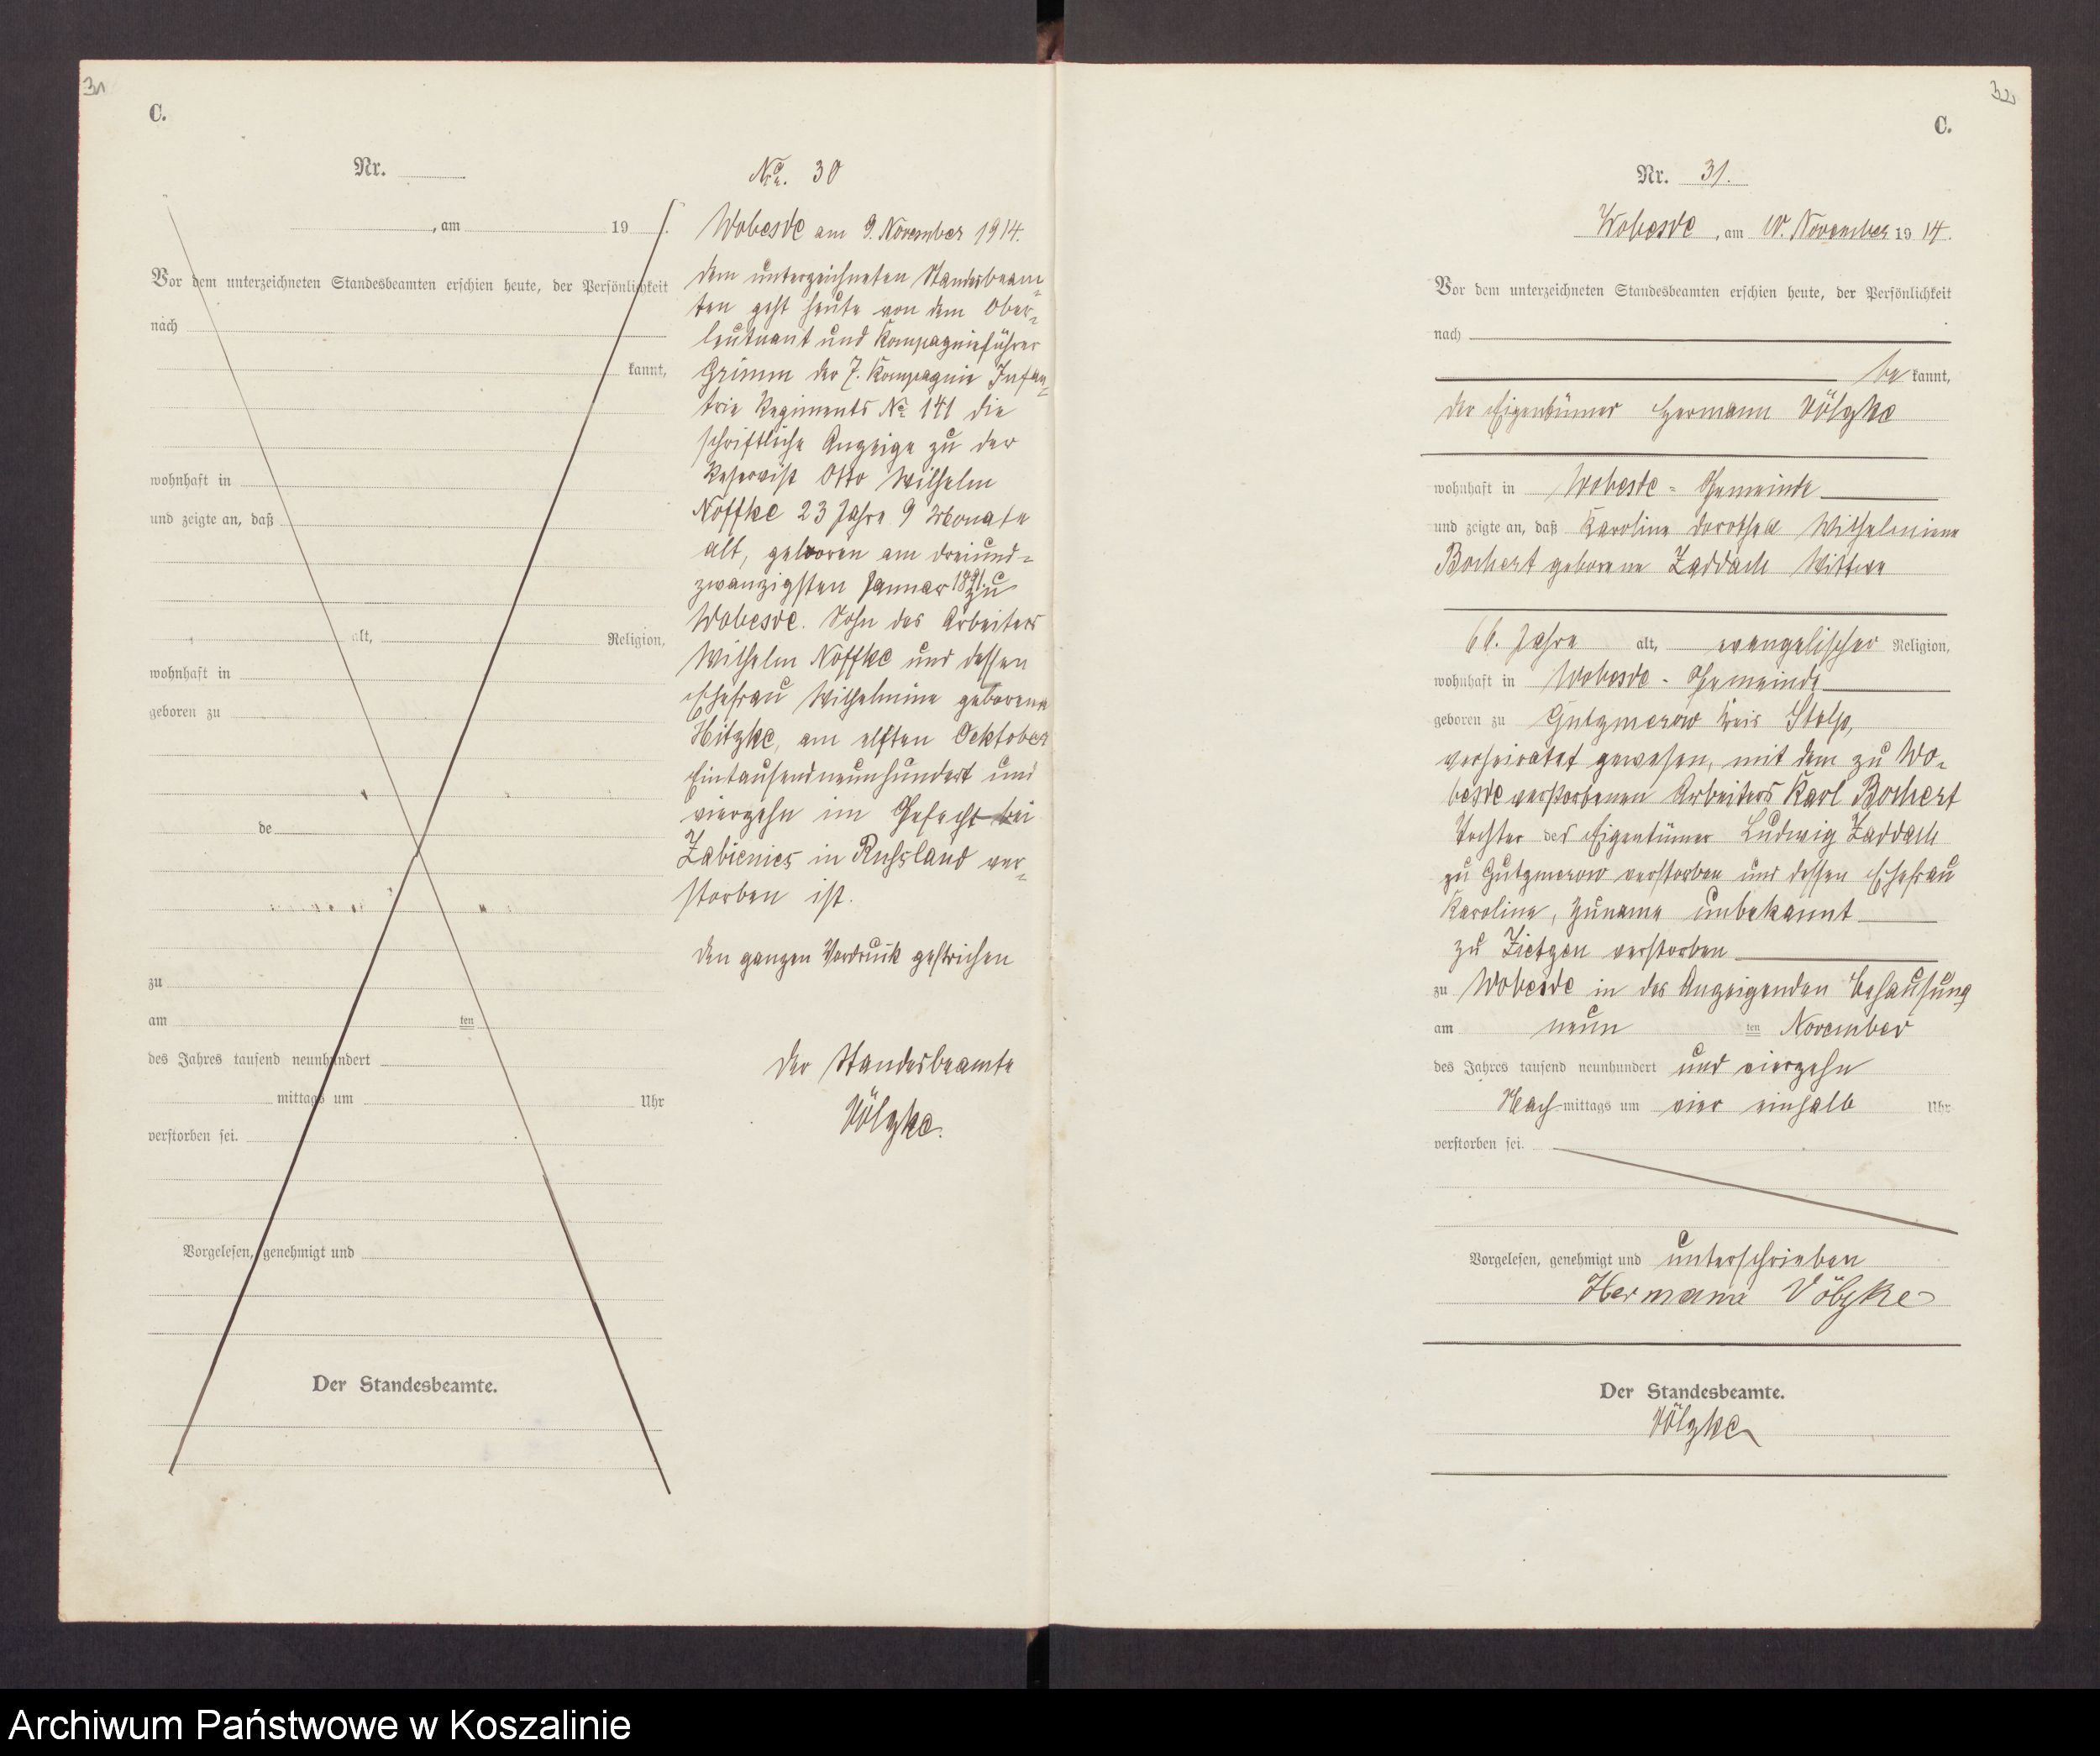 31
C.
Nr.
, am 19 .
Vor dem unterzeichneten Standesbeamten erschien heute, der Persönlichkeit
nach
kannt,
wohnhaft in
und zeigte an, daß
alt, Religion,
wohnhaft in
geboren zu
de
zu
am ten
des Jahres tausend neunhundert
mittags um Uhr
verstorben sei.
Vorgelesen, genehmigt und
Der Standesbeamte.
No. 30
Wobesde am 9. November 1914.
Dem unterzeichneten Standesbeam-
ten geht heute von dem Ober-
leutnant und Kompagnieführer
Grimm der 7. Kompagnie Infan-
trie Regiments No 141 die
schriftliche Anzeige zu der
Reservist Otto Wilhelm
Noffke 23 Jahre 9 Monate
alt, geboren am dreiund-
zwanzigsten Januar 1891 zu
Wobesde. Sohn des Arbeiters
Wilhelm Noffke und dessen
Ehefrau Wilhelmine geborene
Hitzke, am elften Ocktober
Eintausendneunhundert und
vierzehn im Gefecht bei
Zabienies in Russland ver-
storben ist.
Den ganzen Vordruck gestrichen
Der Standesbeamte
Völzke.
32
C.
Nr. 31.
Wobesde, am 10. November 1914.
Vor dem unterzeichneten Standesbeamten erschien heute, der Persönlichkeit
nach
be kannt,
der Eigentümer Hermann Völzke
wohnhaft in Wobesde - Gemeinde
und zeigte an, daß Karoline Dorothea Wilhelmiene
Bochert geborene Zaddach Wittwe
66. Jahre alt, evangelischer Religion,
wohnhaft in Wobesde - Gemeinde
geboren zu Gutzmerow Kreis Stolp,
verheiratet gewesen, mit dem zu Wo-
besde verstorbenen Arbeiters Karl Bochert
Tochter des Eigentümer Ludwig Zaddach
zu Gutzmerow verstorben und dessen Ehefrau
Karoline, Zuname unbekannt
zu Zietzen verstorben
zu Wobesde in des Anzeigenden Behausung
am neun ten November
des Jahres tausend neunhundert und vierzehn
Nach mittags um vier einhalb Uhr
verstorben sei.
Vorgelesen, genehmigt und unterschrieben
Hermann Völzke
Der Standesbeamte.
Völzke
Archiwum Państwowe w Koszalinie